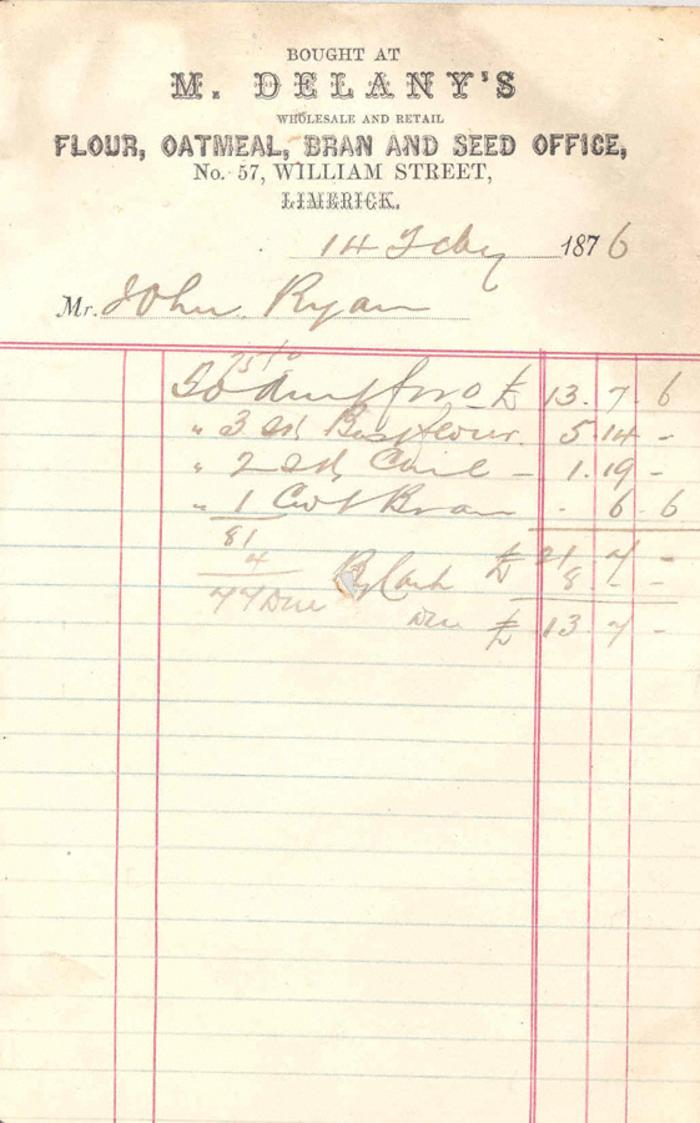 BOUGHT AT
M. DELANY'S
WHOLESALE AND RETAIL
FLOUR, OATMEAL, BRAN AND SEED OFFICE,
No. 57, WILLIAM STREET,
LIMERICK.
14 Feby 1876
Mr. John Ryan
To £ 13. 7. 6
" 3 Best flour. 5.14 -
" 2 - 1.19 -
" 1 Cwt Bran . 6. 6
81
4
£ 21 7 -
By Cash 8. - -
77 Due
Due £ 13. 7 -